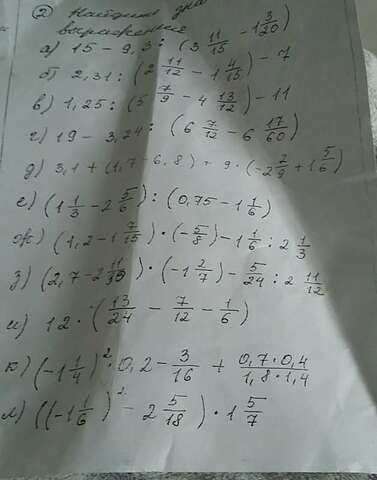 ② Найдите зна
выражения
а) 15 - 9,3 : (3 11/15 - 1 3/20)
б) 2,31 : (2 11/12 - 1 4/15) - 7
в) 1,25 : (5 7/9 - 4 13/12) - 11
г) 19 - 3,24 : (6 7/12 - 6 17/60)
д) 3,1 + (1,7 - 6,8) + 9 · (-2 2/9 + 1 5/6)
е) (1 1/3 - 2 5/6) : (0,75 - 1 1/6)
ж) (1,2 - 1 7/15) · (-5/8) - 1 1/6 : 2 1/3
з) (2,7 - 2 11/35) · (-1 2/7) - 5/24 : 2 11/12
и) 12 · (13/24 - 7/12 - 1/6)
к) (-1 1/4)² · 0,2 - 3/16 + 0,7·0,4/1,8·1,4
л) ((-1 1/6)² - 2 5/18) · 1 5/7